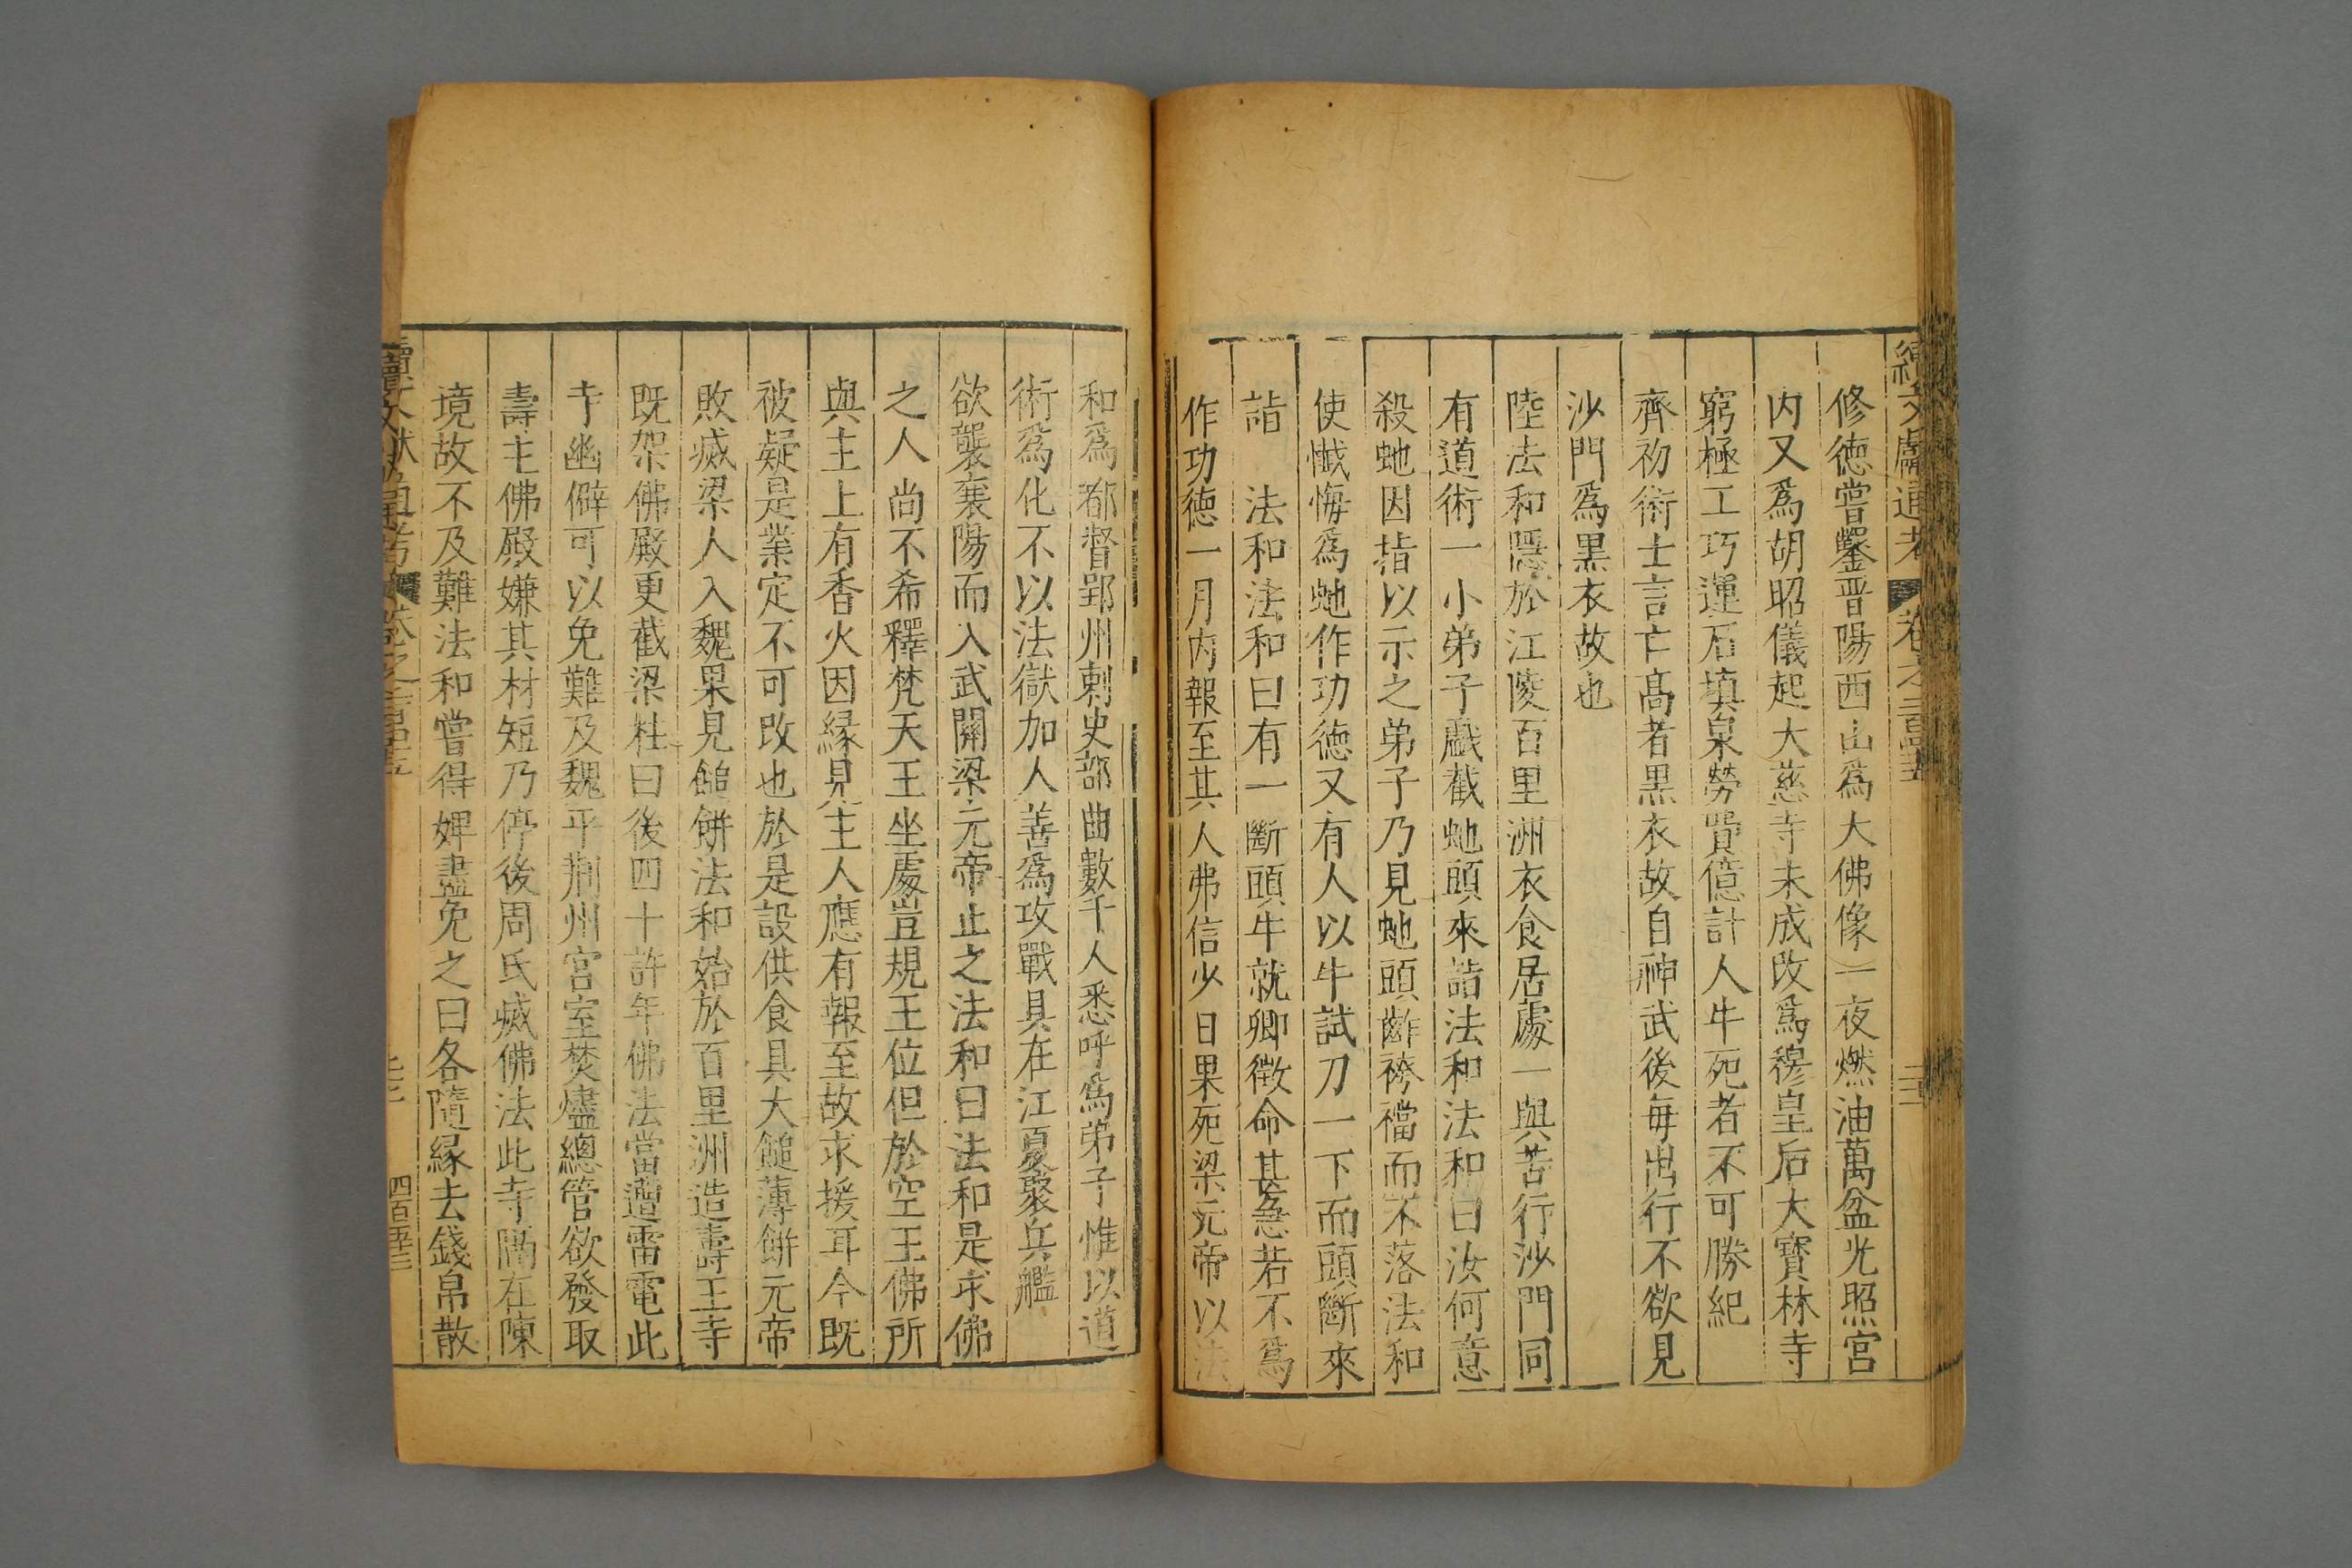 續文獻通考 卷之二百四十五
修德嘗鑿晋陽西山爲大佛像一夜燃油萬盆光照宮
内又爲胡昭儀起大慈寺未成改爲穆皇后大寳林寺
窮極工巧運石填泉勞費億計人牛死者不可勝紀
齊初術士言亡髙者黒衣故自神武後毎出行不欲見
沙門爲黒衣故也
陸法和隱於江陵百里洲衣食居處一與苦行沙門同
有道術一小弟子戲截虵頭來詣法和法和曰汝何意
殺虵因指以示之弟子乃見虵頭齚袴襠而不落法和
使懺悔爲虵作功德又有人以牛試刀一下而頭斷來
詣 法和法和曰有一斷頭牛就卿徵命甚急若不爲
作功德一月内報至其人弗信少日果死梁元帝以法
和爲都督郢州刺史部曲數千人悉呼爲弟子惟以道
術爲化不以法獄加人善爲攻戰具在江夏聚兵艦
欲襲襄陽而入武關梁元帝止之法和曰法和是求佛
之人尚不希釋梵天王坐處豈規王位但於空王佛所
與主上有香火因緣見主人應有報至故求援耳今既
被疑是業定不可改也於是設供食具大䭔薄餅元帝
敗滅梁人入魏果見䭔餅法和始於百里洲造壽王寺
既架佛殿更截梁柱曰後四十許年佛法當遭雷電此
寺幽僻可以免難及魏平荆州宮室焚燼總管欲發取
壽王佛殿嫌其材短乃停後周氏滅佛法此寺隔在陳
境故不及難法和嘗得婢盡免之曰各隨緣去錢帛散
四百五十三